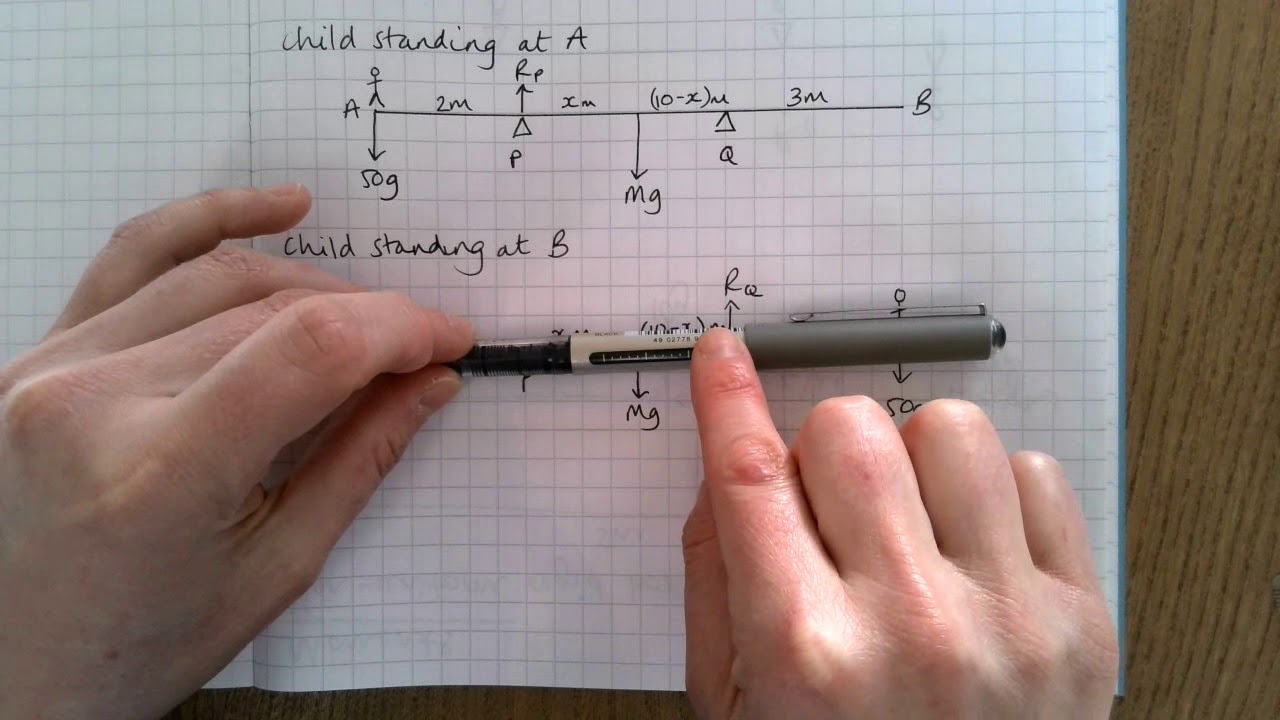 Child standing at A
RP
A 2m xm (10-x)m 3m B
P Q
50g
Mg
Child standing at B
RQ
(10-x)m
49 02778
Mg